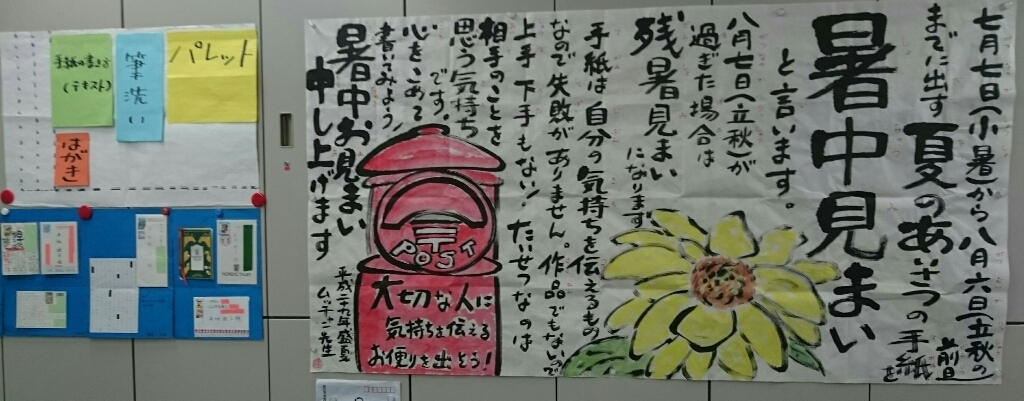 七月七日(小暑)から八月六日(立秋の前日)
までに出す夏のあいさつの手紙を
暑中見まい
と言います。
八月七日(立秋)が
過ぎた場合は
残暑見まい
になります
手紙は自分の気持ちを伝えるもの
なので失敗がありません。作品でもないので
上手下手もない!たいせつなのは
相手のことを
思う気持ち
です。
心をこめて
書いてみよう
暑中お見まい
申し上げます
平成二十九年盛夏
ムッチーニ先生
〒
POST
大切な人に
気持ちを伝える
お便りを出そう!
パレット
筆洗い
手紙の書き方
(テキスト)
はがき